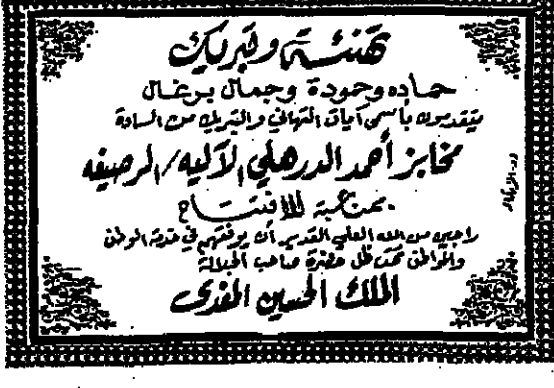 تهنئة وتبريك
حماده وحمودة وجمال برغال
يتقدمون بأسمى آيات التهاني والتبريك من السادة
مخابز أحمد الدرهلي الآليه / الرصيفه
بمناسبة الافتتاح
راجين من الله العلي القدير أن يوفقهم في خدمة الوطن
والمواطن تحت ظل حضرة صاحب الجلالة
الملك الحسين المفدى